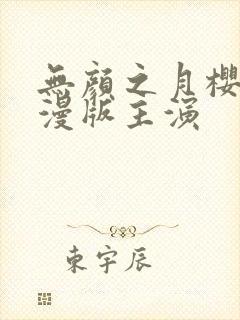 無顏之月櫻
漫版主演
東宇辰